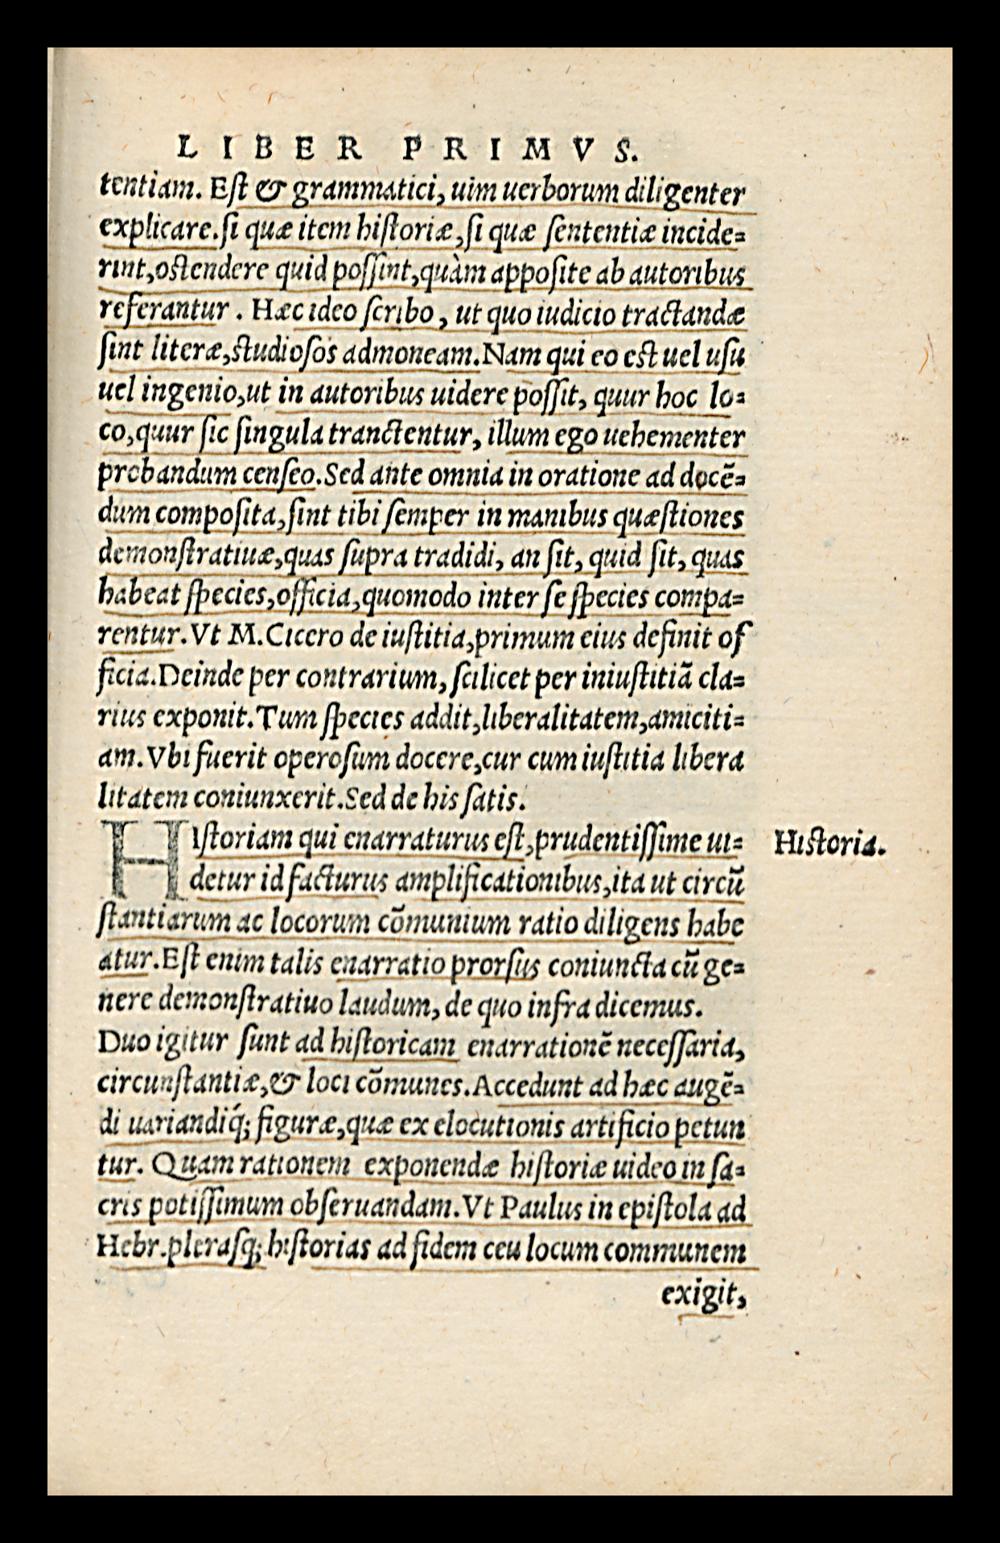 LIBER PRIMVS.
tentiam. Eſt & grammatici, uim uerborum diligenter
explicare. ſi quæ item hiſtoriæ, ſi quæ ſententiæ incide=
rint, oſtendere quid poſſint, quàm appoſite ab autoribus
referantur. Hæc ideo ſcribo, ut quo iudicio tractandæ
ſint literæ, ſtudioſos admoneam. Nam qui eo eſt uel uſu
uel ingenio, ut in autoribus uidere poſſit, quur hoc lo=
co, quur ſic ſingula tranctentur, illum ego uehementer
probandum cenſeo. Sed ante omnia in oratione ad docē=
dum compoſita, ſint tibi ſemper in manibus quæſtiones
demonſtratiuæ, quas ſupra tradidi, an ſit, quid ſit, quas
habeat ſpecies, officia, quomodo inter ſe ſpecies compa=
rentur. Vt M. Cicero de iuſtitia, primum eius definit of
ficia. Deinde per contrarium, ſcilicet per iniuſtitiā cla=
rius exponit. Tum ſpecies addit, liberalitatem, amiciti=
am. Vbi fuerit operoſum docere, cur cum iuſtitia libera
litatem coniunxerit. Sed de his ſatis.
HIſtoriam qui enarraturus eſt, prudentiſſime ui= Hiſtoria.
detur id facturus amplificationibus, ita ut circū
ſtantiarum ac locorum cōmunium ratio diligens habe
atur. Eſt enim talis enarratio prorſus coniuncta cū ge=
nere demonſtratiuo laudum, de quo infra dicemus.
Duo igitur ſunt ad hiſtoricam enarrationē neceſſaria,
circunſtantiæ, & loci cōmunes. Accedunt ad hæc augē=
di uariandiq́; figuræ, quæ ex elocutionis artificio petun
tur. Quam rationem exponendæ hiſtoriæ uideo in ſa=
cris potiſſimum obſeruandam. Vt Paulus in epiſtola ad
Hebr. pleraſq; hiſtorias ad fidem ceu locum communem
exigit,